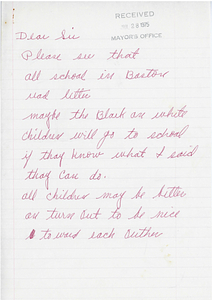 RECEIVED
1975
MAYOR'S OFFICE
Dear Sir
Please see that
all school in Bastone
read letter
maybe the Black an white
children will go to school
if thay know what I said
thay can do.
all children may be better
an turn out to be nice
to ward each outher